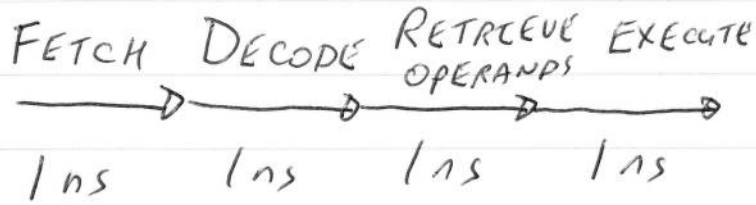 FETCH DECODE RETRIEVE OPERANDS EXECUTE
1 ns 1 ns 1 ns 1 ns